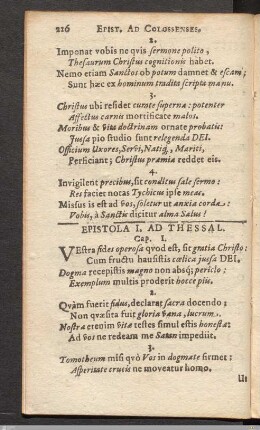 216 EPIST. AD COLOSSENSES.
2.
Imponat vobis ne qvis sermone polito,
Thesaurum Christus cognitionis habet.
Nemo etiam Sanctos ob potum damnet & escam;
Sunt hæc ex hominum tradita scripta manu.
3.
Christus ubi resĩdet curate superna: potenter
Affectus carnis mortificate malos.
Moribus & vita doctrinam ornate probatis:
Jussa pio studio sunt relegenda DEI.
Officium Uxores, Servi, Natiq;, Mariti,
Perficiant; Christus præmia reddet eis.
4.
Invigilent precibus, sit conditus sale sermo:
Res faciet notas Tychicus ipse meas.
Missus is est ad vos, soletur ut anxia corda:
Vobis, à Sanctis dicitur alma Salus!
EPISTOLA I. AD THESSAL.
Cap. 1.
VEstra fides operosa qvod est, sit gratia Christo:
Cum fructu hausistis cœlica jussa DEI.
Dogma recepistis magno non absq; periclo:
Exemplum multis proderit hocce pijs.
2.
Qvàm fuerit fidus, declarat sacra docendo;
Non qvæsita fuit gloria vana, lucrum.
Nostræ etenim vitæ testes simul estis honestæ:
Ad vos ne redeam me Satan impediit.
3.
Timotheum misi qvò Vos in dogmate firmet:
Asperitate crucis ne moveatur homo.
Ut